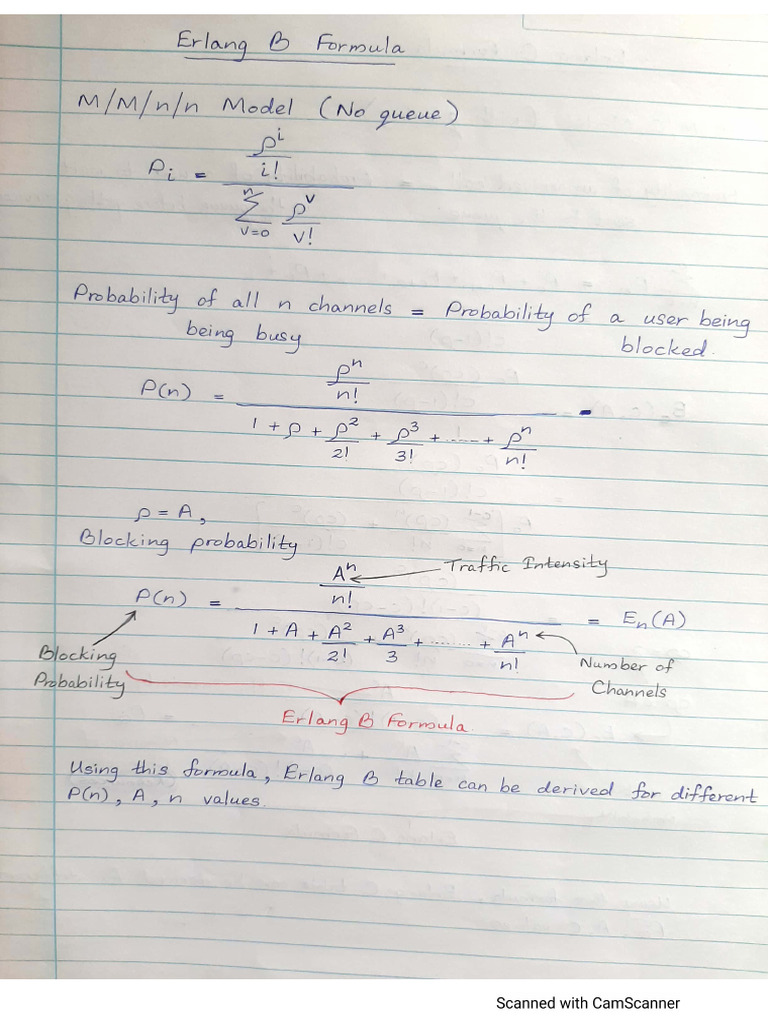 Erlang B Formula
M/M/n/n Model (No queue)
P_i = (ρ^i / i!) / (∑_{v=0}^{n} ρ^v / v!)
Probability of all n channels = Probability of a user being
being busy blocked.
P(n) = (ρ^n / n!) / (1 + ρ + ρ^2/2! + ρ^3/3! + ...... + ρ^n/n!)
ρ = A,
Blocking probability
Traffic Intensity
P(n) = (A^n / n!) / (1 + A + A^2/2! + A^3/3 + ....... + A^n/n!) = E_n(A)
Blocking
Probability
Number of
Channels
Erlang B Formula.
Using this formula, Erlang B table can be derived for different
P(n), A, n values.
Scanned with CamScanner